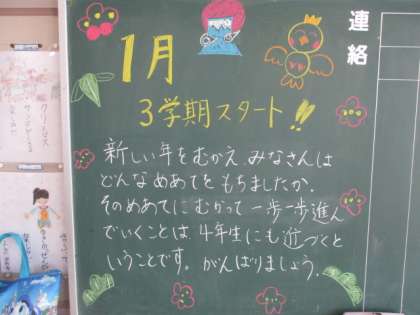 1月
連絡
3学期スタート!!
新しい年をむかえ、みなさんは
どんなめあてをもちましたか。
そのめあてにむかって一歩一歩進ん
でいくことは、4年生にも近づくと
いうことです。がんばりましょう。